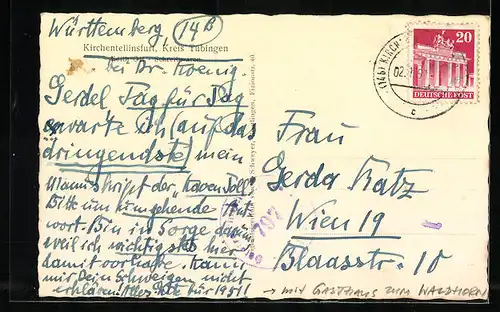 Württemberg (14B)
Kirchentellinsfurt, Kreis Tübingen
bei Dr. Koenig.
Gerdel Tag für Tag
erwarte ich (auf das
dringendste) mein
Manuskript der
Bitte um umgehende Ant-
wort. Bin in Sorge darum
weil ich nichts hier
damit Kann
mir Dein Schweigen nicht
erklären. Alles Gute für 1951!
20
DEUTSCHE POST
Frau
Gerda Katz
Wien 19
Blaasstr. 10
797
→ MIT GASTHAUS ZUM WALDHORN